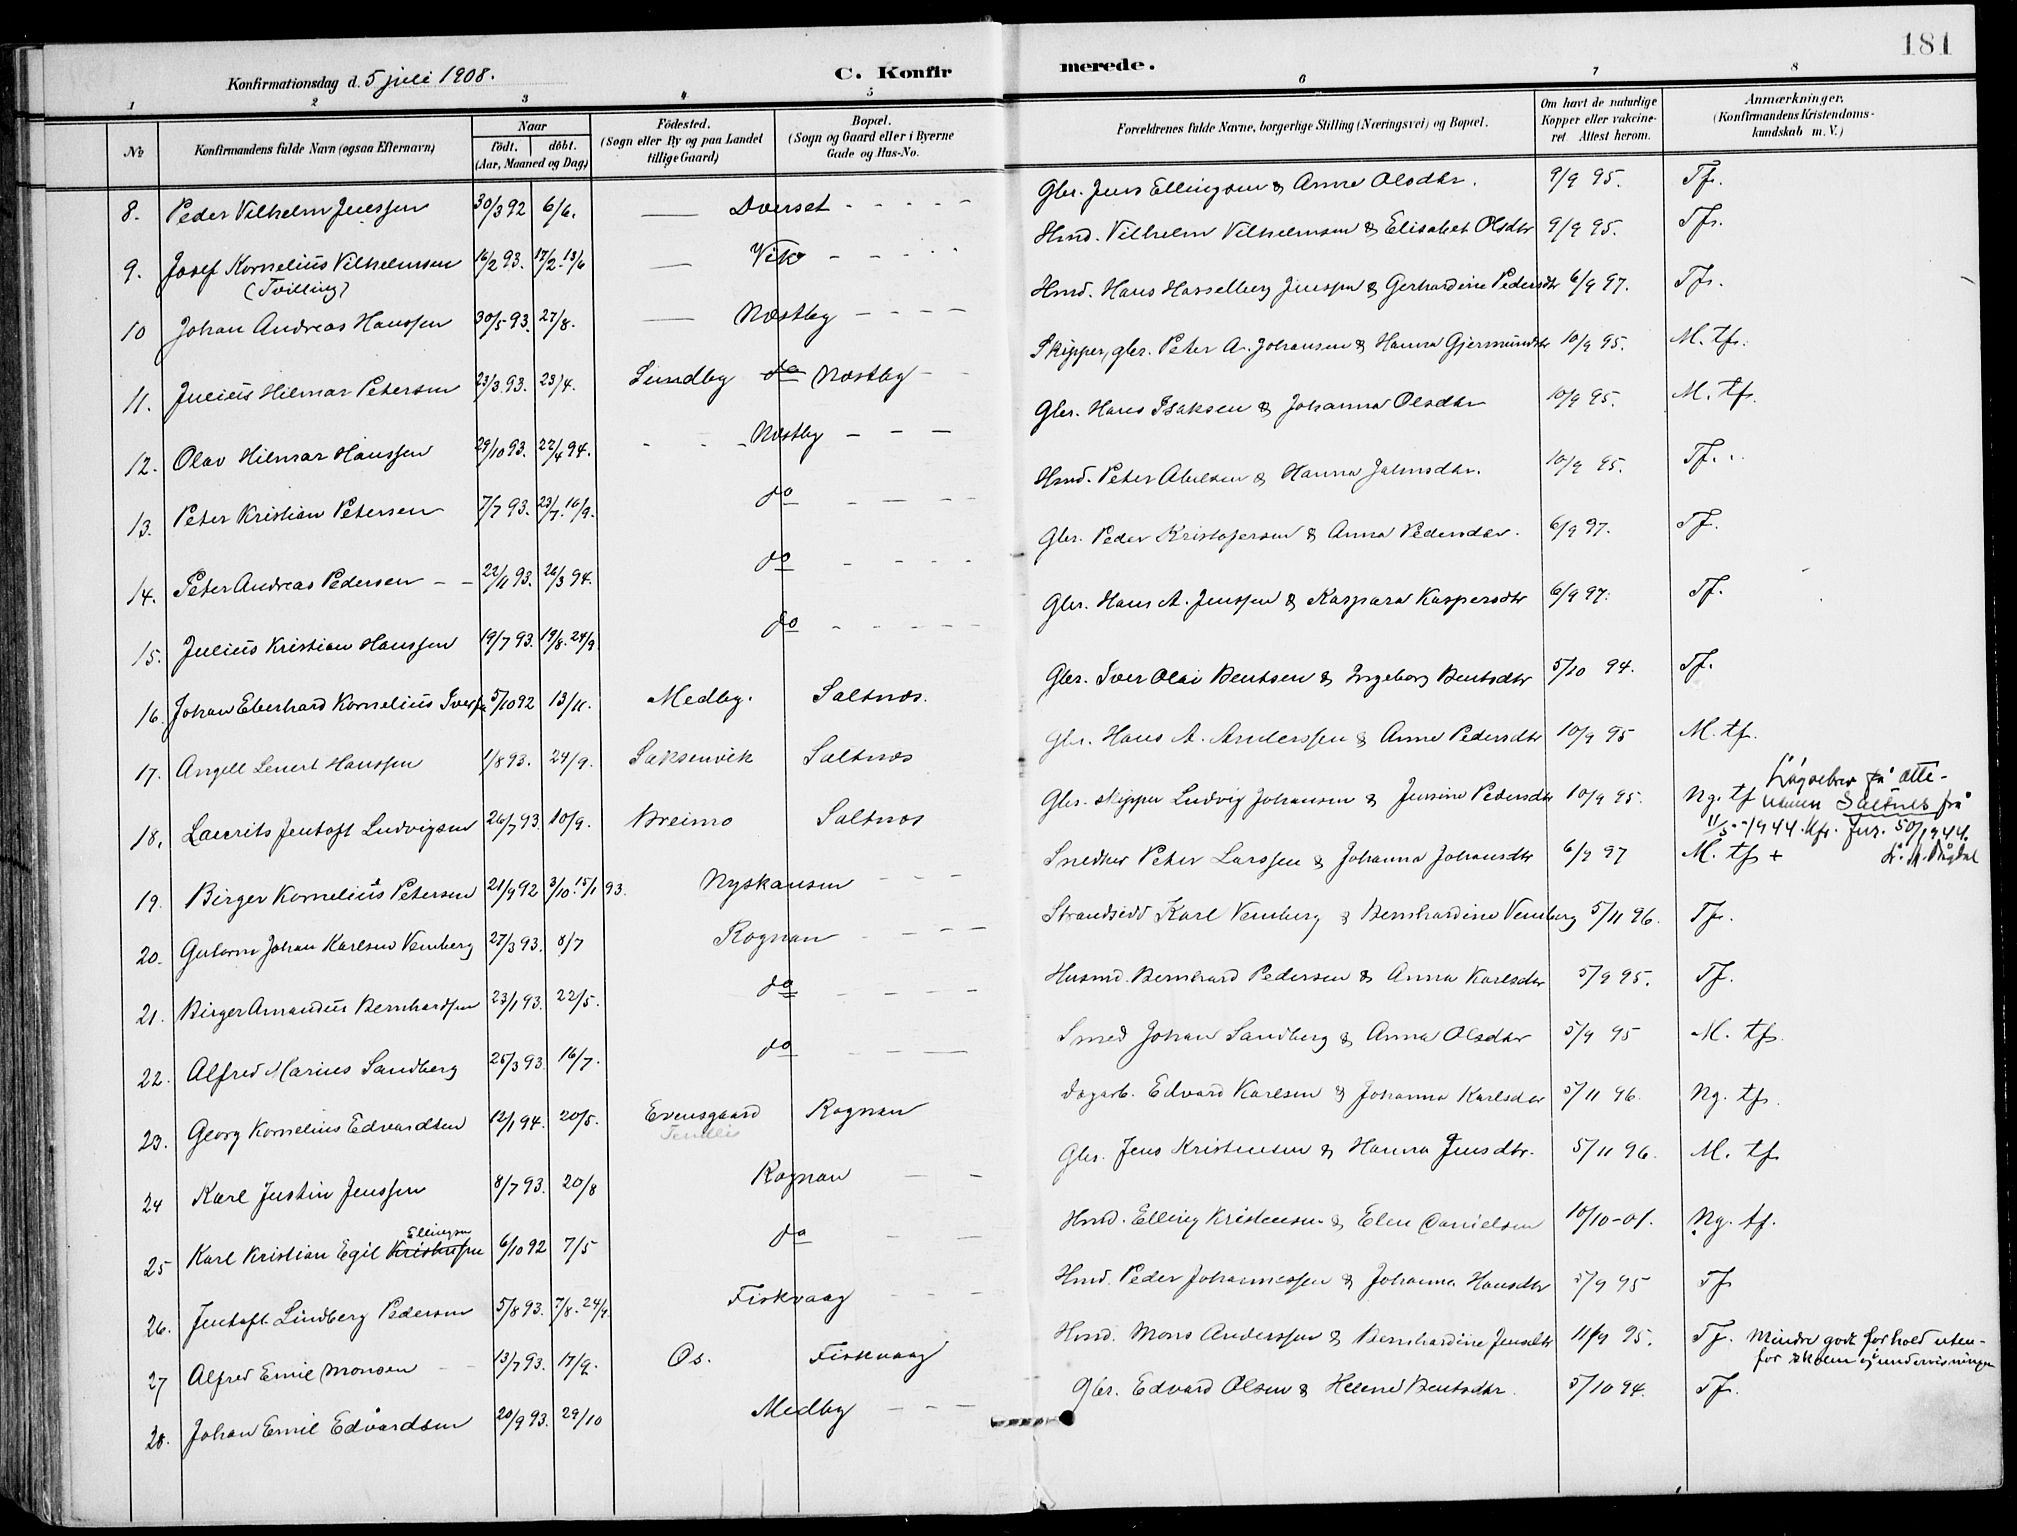 181
Konfirmationsdag d. 5 juli 1908.
C. Konfirmerede.
1 2 3 4 5 6 7 8
No
Konfirmandens fulde Navn (ogsaa Efternavn)
Naar
födt. döbt.
(Aar, Maaned og Dag)
Födested.
(Sogn eller By og paa Landet
tillige Gaard)
Bopæl.
(Sogn og Gaard eller i Byerne
Gade og Hus-No.
Forældrenes fulde Navne, borgerlige Stilling (Næringsvei) og Bopæl.
Om havt de naturlige
Kopper eller vakcine-
ret Attest herom.
Anmærkninger.
(Konfirmandens Kristendoms-
kundskab m. V.)
8. Peder Vilhelm Jenssen 30/3 92 6/6. — Dverset - - - - - Gbr. Jens Ellingsen & Anne Olsdtr. 9/9 95. Tf.
9. Josef Kornelius Vilhelmsen 16/2 93. 17/2. 13/6 — Vik - - - - Hmd. Vilhelm Vilhelmsen & Elisabet Olsdtr 9/9 95. Tfr.
(Tvilling)
10 Johan Andreas Hanssen 30/5 93. 27/8. — Næstby - - - - Hmd. Hans Hasselberg Jenssen & Gerhardine Pedersdtr 6/9 97. Tfr.
11. Julius Hilmar Petersen 23/3 93. 23/4. Lundby do Næstby - - Skipper, gbr. Peter A. Johansen & Hanna Gjermundsdtr 10/9 95. M. tfr.
12. Olav Hilmar Hanssen 29/10 93. 22/4 94. - - - Næstby - - - Gbr. Hans Isaksen & Johanna Olsdtr 10/9 95. M. tf.
13. Peter Kristian Petersen 7/7 93. 23/7. 10/9. do - - - - Hmd. Peter Abelsen & Hanna Jakobsdtr. 10/9 95. Tf.
14. Peter Andreas Pedersen - - 22/11 93. 26/3 94. do - - - - Gbr. Peder Kristofersen & Anna Pedersdtr. 6/9 97. Tf.
15. Julius Kristian Hanssen 19/7 93. 19/8. 24/9. do - - - - - Gbr. Hans A. Jenssen & Kaspara Kaspersdtr 6/9 97. Tf.
16. Johan Eberhard Kornelius Iversen 5/10 92 13/11. Medby. Saltnæs. Gbr. Iver Olai Bentsen & Ingeborg Bentsdtr 5/10 94. Tf.
17. Angell Lenert Hanssen 1/8 93. 24/9. Saksenvik Saltnæs Gbr. Hans A. Anderssen & Anne Pedersdtr 10/9 95 M. tf.
18. Laurits Jentoft Ludvigsen 26/7 93. 10/9. Breimo Saltnæs Gbr. skipper Ludvig Johansen & Jensine Pedersdtr 10/9 95. Ng. tf
på ætte-
navn Saltnes frå
11/5 - 1944. Kfr. Jnr. 50/1944.
19. Birger Kornelius Petersen 21/9 92 3/10. 15/1 93. Nyskansen - - - Snedker Peter Larssen & Johanna Johansdtr 6/9 97 M. tfr +
20. Gutorm Johan Karlsen Vemberg 27/3 93. 8/7 Rognan - - - - Strandsidd Karl Vemberg & Bernhardine Vemberg 5/11 96. Tfr.
21. Birger Amandus Bernhardsen 23/1 93. 22/5. do - - - - Husmd. Bernhard Pedersen & Anna Karlsdtr 5/9 95. Tf.
22. Alfred Marius Sandberg 25/3 93. 16/7. do - - - Smed Johan Sandberg & Anna Olsdtr 5/9 95 M. tfr.
23. Georg Kornelius Edvardsen 12/1 94. 20/5. Evensgaard Rognan Dagarb. Edvard Karlsen & Johanna Karlsdtr 5/11 96. Ng. tfr.
24 Karl Justin Jenssen 8/7 93. 20/8 Rognan - - Gbr. Jens Kristensen & Hanna Jensdtr. 5/11 96. M. tf
Ellingsen
25 Karl Kristian Egil Kristensen 6/10 92 7/5 do - - Hmd. Elling Kristensen & Elen Danielsen 10/10-01. Ng. tf.
26. Jentoft Lindberg Pedersen 5/8 93. 7/8. 24/9. Fiskvaag - - - Hmd. Peder Johannessen & Johanna Hansdtr 5/9 95 Tf
27 Alfred Emil Monsen - - 13/7 93. 17/9. Os. Fiskvaag Hmd. Mons Anderssen & Bernhardine Jensdtr 11/9 95. Tf. Mindre godt forhold uten-
for skolen og undervisningen
28. Johan Emil Edvardsen 20/9 93. 29/10 Medby - - - Gbr. Edvard Olsen & Helene Bentsdtr. 5/10 94. Tf.